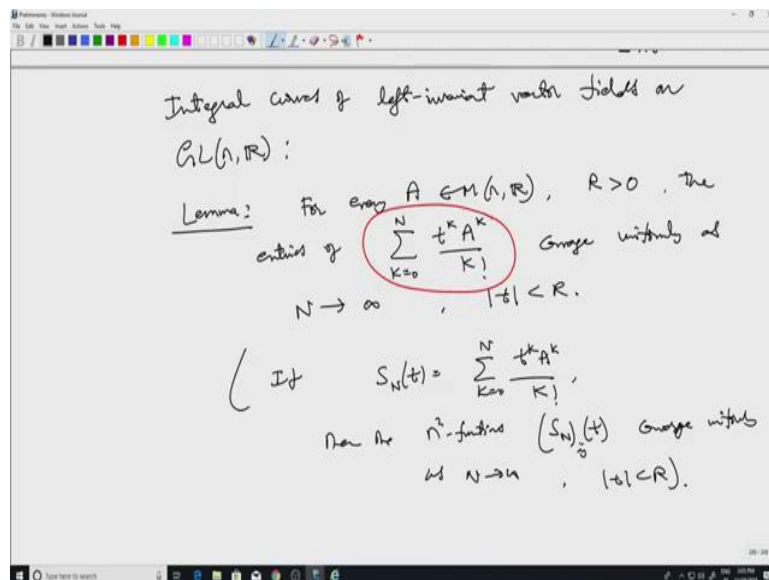 Preliminaries - Windows Journal
File Edit View Insert Actions Tools Help
Integral curves of left-invariant vector fields on
GL(n, ℝ) :
Lemma: For every A ∈ M(n, ℝ), R > 0, the
entries of \sum_{K=0}^{N} \frac{t^K A^K}{K!} converge uniformly as
N → ∞ , |t| < R.
( If S_N(t) = \sum_{K=0}^{N} \frac{t^K A^K}{K!} ,
then the n²-functions (S_N)_{ij}(t) converge uniformly
as N → ∞ , |t| < R).
Type here to search
ENG 3:05 PM